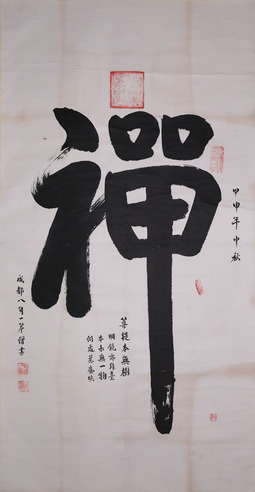 甲申年中秋
禪
菩提本無樹
明鏡亦非臺
本來無一物
何處惹塵埃
成都八旬一僧書